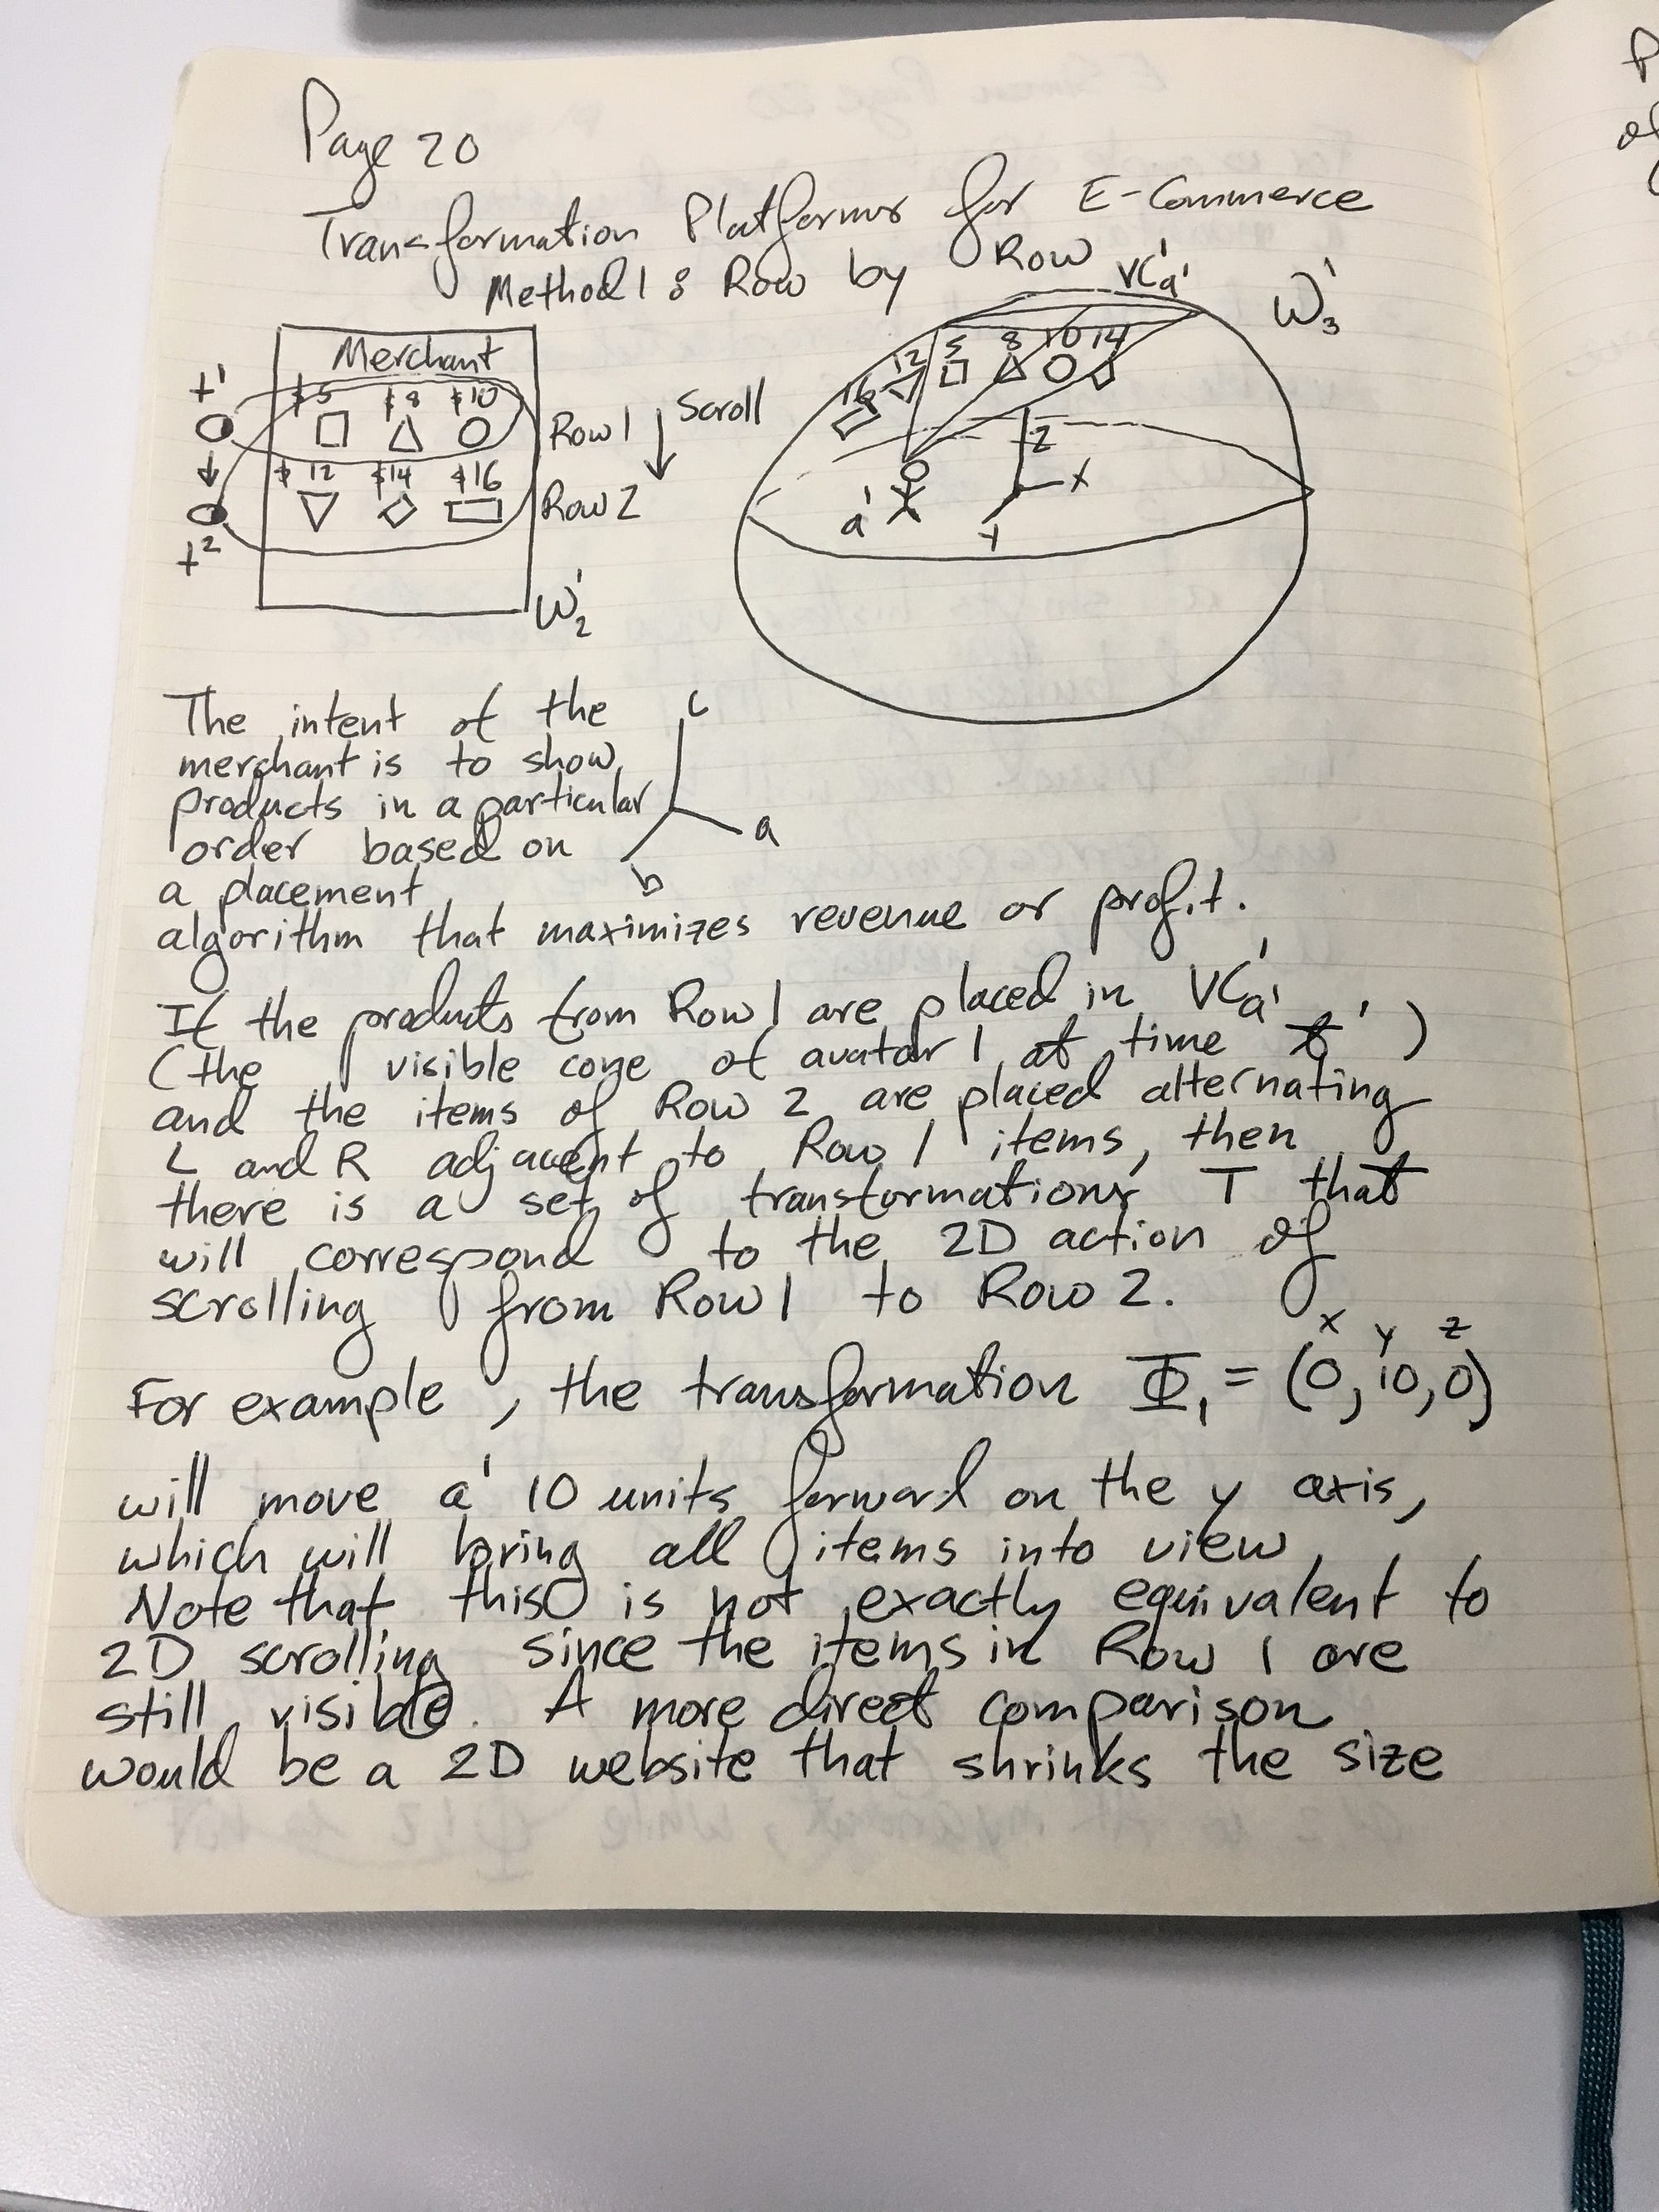 Page 20
Transformation Platforms for E-Commerce
Method 1: Row by Row
VC¹a¹
W¹₃
Merchant
t¹
$5 $8 $10
Row 1
Scroll
$12 $14 $16
Row 2
t²
W¹₂
16 12 5 8 10 14
a¹
Z
X
Y
The intent of the
merchant is to show
products in a particular
order based on
a placement
c
a
b
algorithm that maximizes revenue or profit.
If the products from Row 1 are placed in VC¹a¹
(the visible cone of avatar 1 at time t¹)
and the items of Row 2 are placed alternating
L and R adjacent to Row 1 items, then
there is a set of transformations T that
will correspond to the 2D action of
scrolling from Row 1 to Row 2.
x y z
For example, the transformation Φ₁ = (0, 10, 0)
will move a¹ 10 units forward on the y axis,
which will bring all items into view.
Note that this is not exactly equivalent to
2D scrolling since the items in Row 1 are
still visible. A more direct comparison
would be a 2D website that shrinks the size
P
of